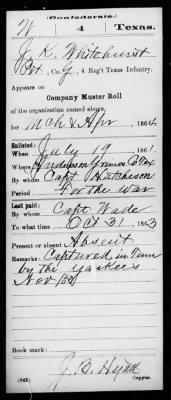 (Confederate.)
W 4 Texas.
J. K. Whitehurst
Pvt., Co. G, 4 Reg't Texas Infantry.
Appears on
Company Muster Roll
of the organization named above,
for Mch & Apr, 1864
Enlisted:
When July 19, 1861.
Where Anderson Grimes Co Tex
By whom Capt Hutcheson
Period For the war
Last paid:
By whom Capt Wade
To what time Oct 31, 1863
Present or absent Absent
Remarks: Captured in Tenn
by the Yankees
Nov
Book mark:
(642) Copyist.